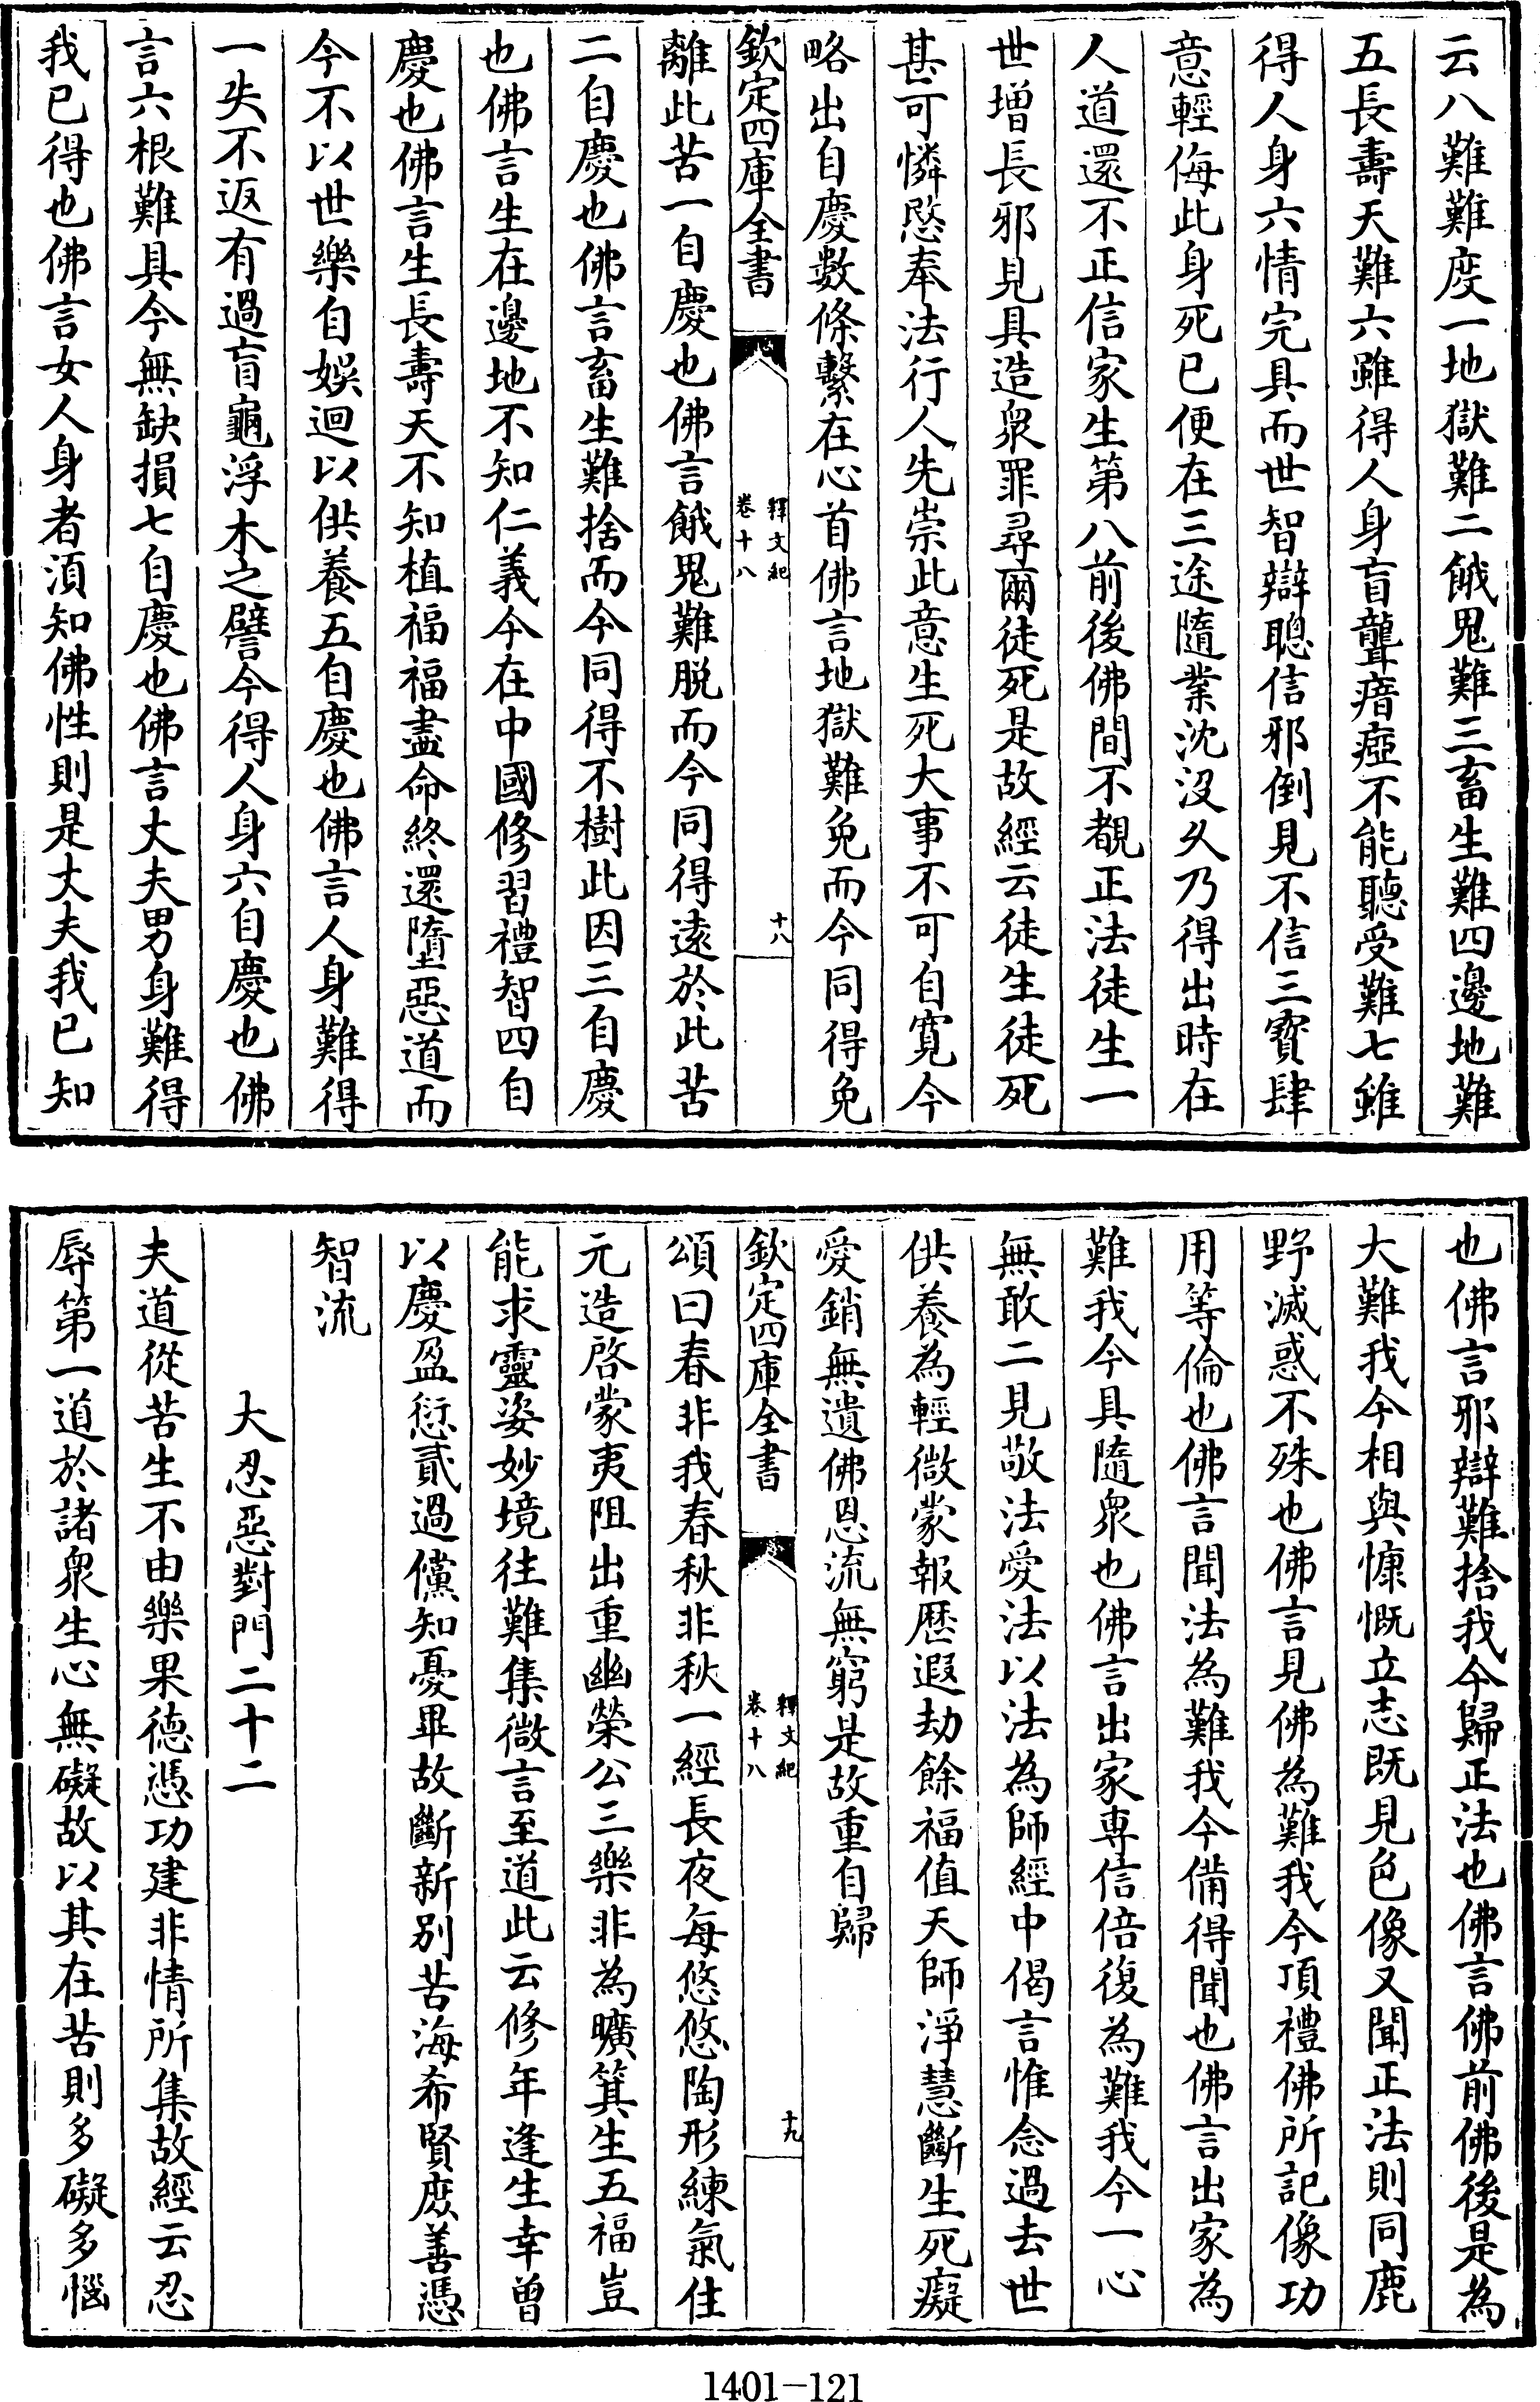 云八難難度一地獄難二餓鬼難三畜生難四邊地難
五長壽天難六雖得人身盲聾瘖瘂不能聽受難七雖
得人身六情完具而世智辯聰信邪倒見不信三寶肆
意輕侮此身死已便在三途隨業沈沒久乃得出時在
人道還不正信家生第八前後佛間不覩正法徒生一
世增長邪見具造衆罪尋爾徒死是故經云徒生徒死
甚可憐愍奉法行人先崇此意生死大事不可自寛今
略出自慶數條繫在心首佛言地獄難免而今同得免
欽定四庫全書
釋文紀
卷十八
十八
離此苦一自慶也佛言餓鬼難脱而今同得遠於此苦
二自慶也佛言畜生難捨而今同得不樹此因三自慶
也佛言生在邊地不知仁義今在中國修習禮智四自
慶也佛言生長壽天不知植福福盡命終還墮惡道而
今不以世樂自娛迴以供養五自慶也佛言人身難得
一失不返有過盲龜浮木之譬今得人身六自慶也佛
言六根難具今無缺損七自慶也佛言丈夫男身難得
我已得也佛言女人身者須知佛性則是丈夫我已知
也佛言邪辯難捨我今歸正法也佛言佛前佛後是為
大難我今相與慷慨立志既見色像又聞正法則同鹿
野滅惑不殊也佛言見佛為難我今頂禮佛所記像功
用等倫也佛言聞法為難我今備得聞也佛言出家為
難我今具隨衆也佛言出家專信倍復為難我今一心
無敢二見敬法愛法以法為師經中偈言惟念過去世
供養為輕微蒙報歷遐劫餘福值天師淨慧斷生死癡
愛銷無遺佛恩流無窮是故重自歸
欽定四庫全書
釋文紀
卷十八
十九
頌曰春非我春秋非秋一經長夜每悠悠陶形練氣住
元造啓蒙夷阻出重幽榮公三樂非為曠箕生五福豈
能求靈姿妙境往難集微言至道此云修年逢生幸曾
以慶盈愆貳過儻知憂畢故斷新別苦海希賢庶善憑
智流
大忍惡對門二十二
夫道從苦生不由樂果德憑功建非情所集故經云忍
辱第一道於諸衆生心無礙故以其在苦則多礙多惱
1401－121